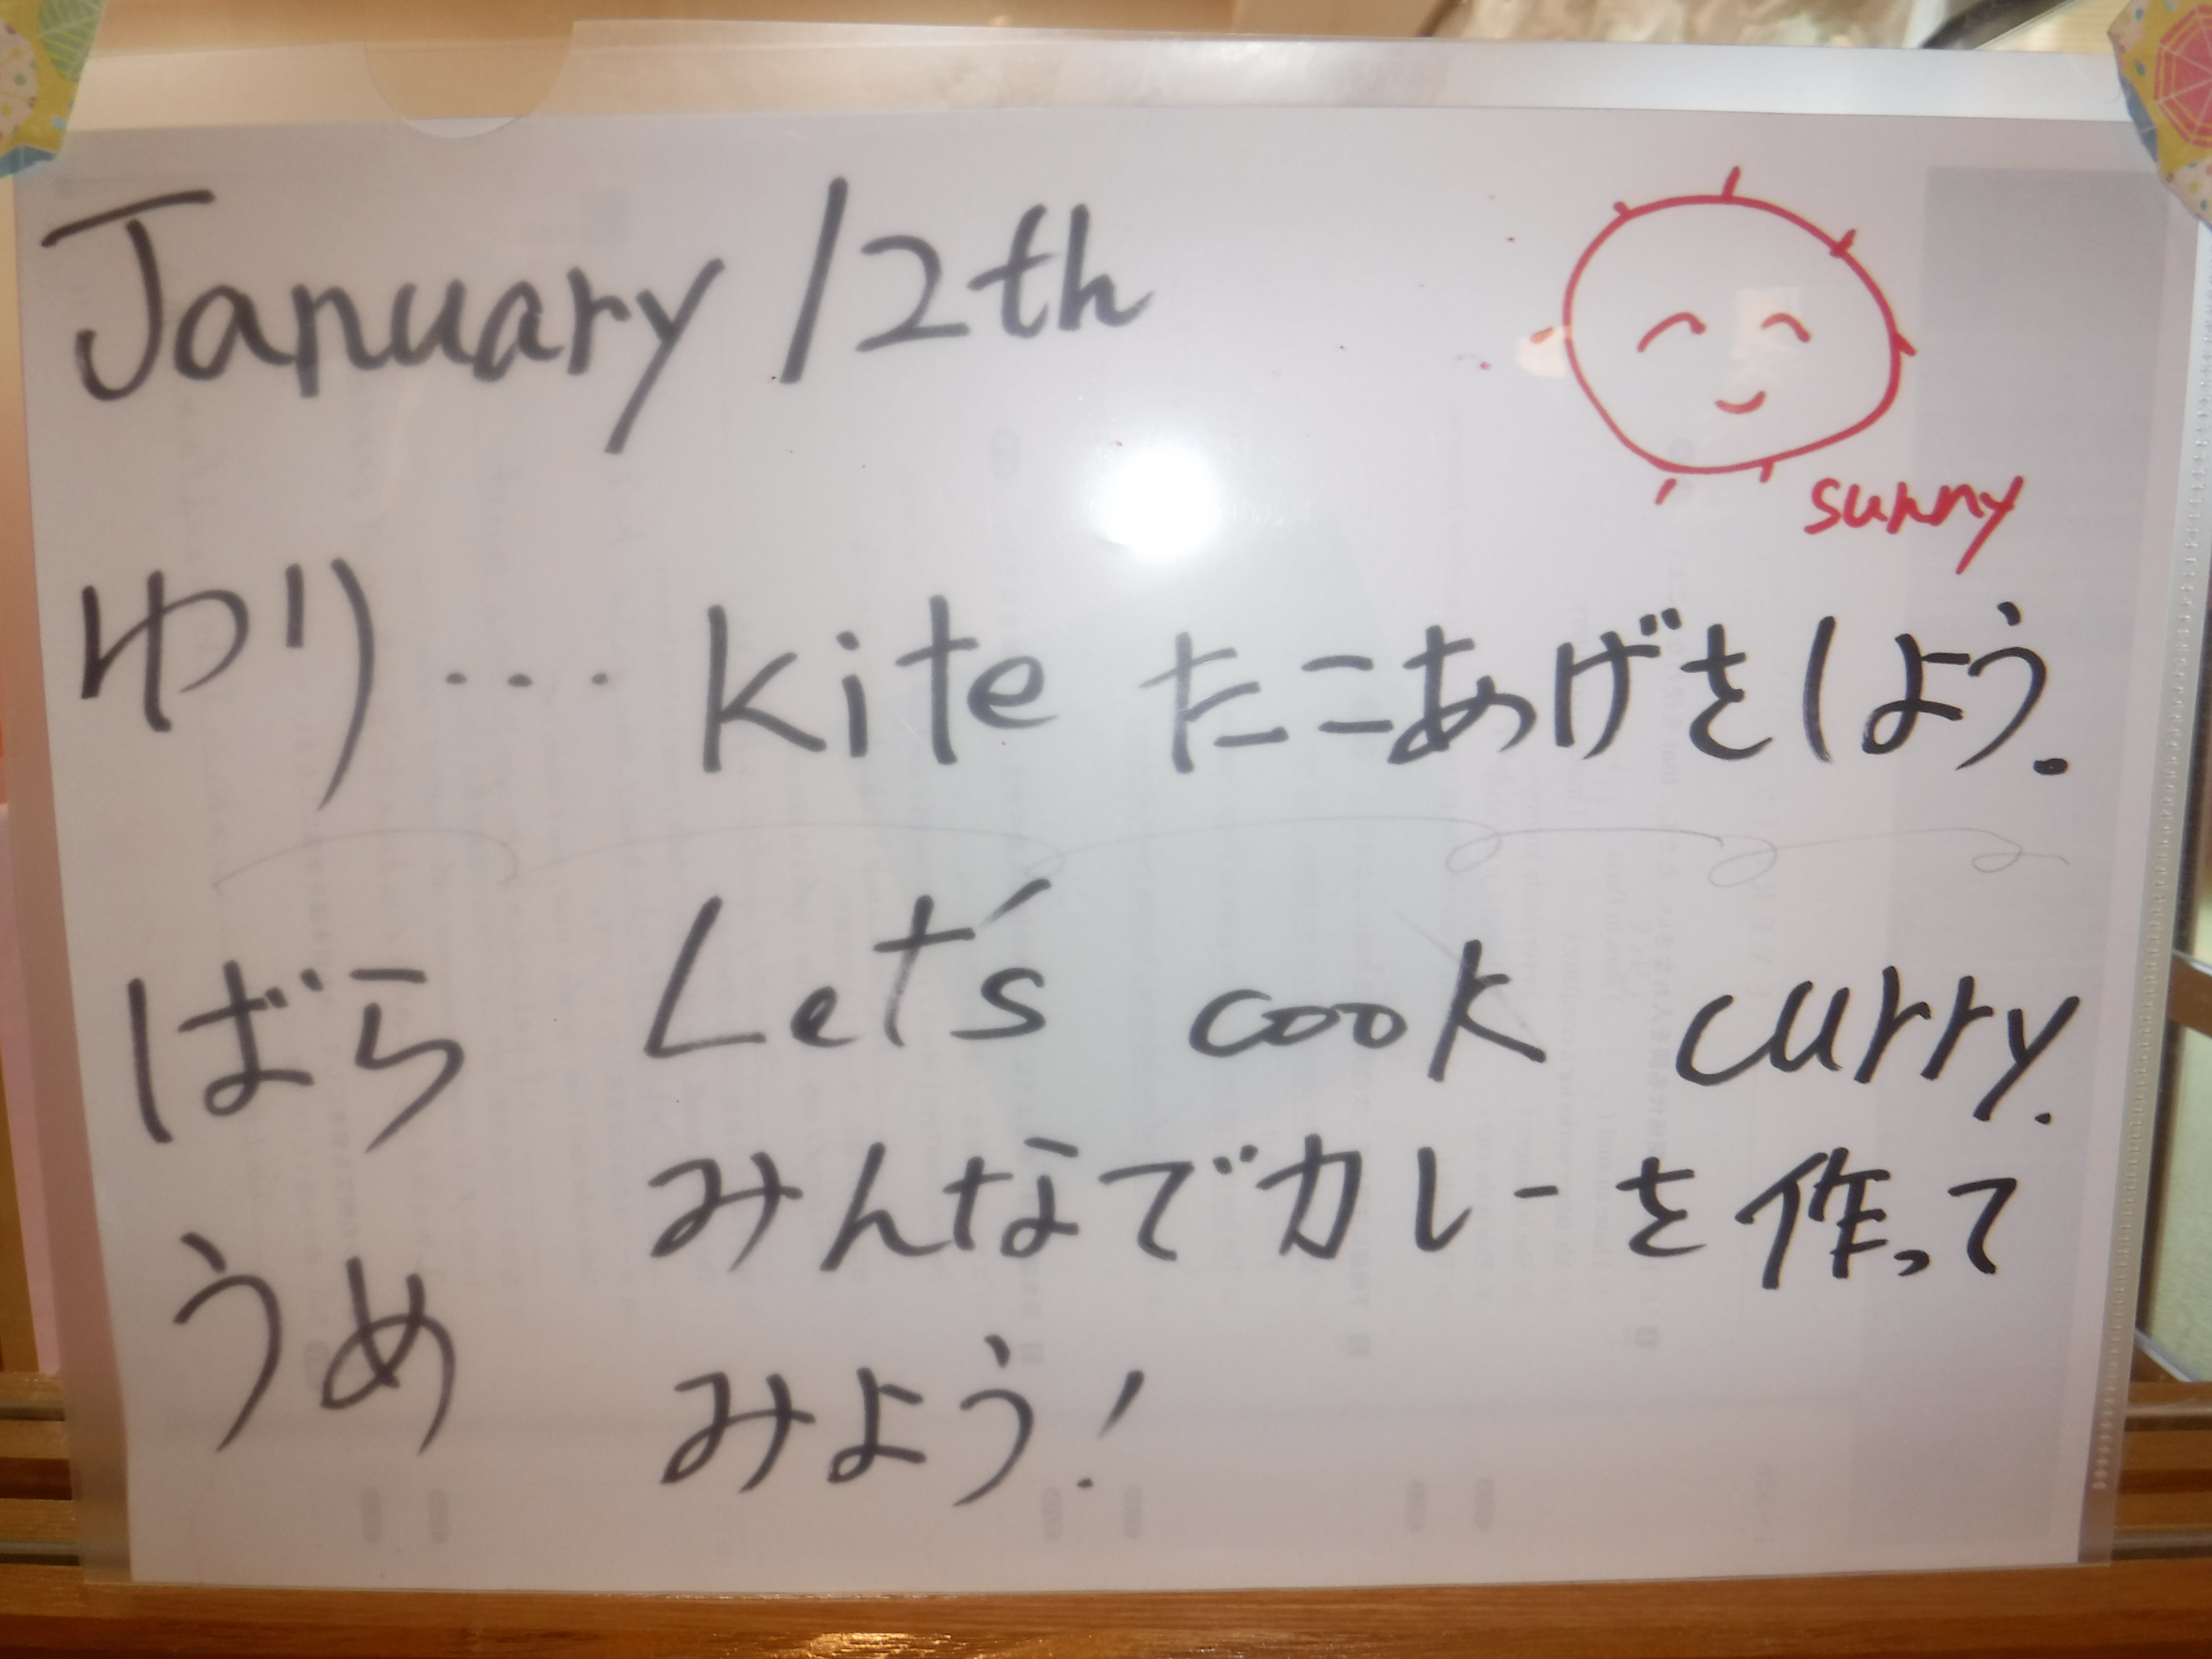 January 12th
sunny
ゆり... kite たこあげをしよう.
ばら Let's cook curry.
みんなでカレーを作って
うめ みよう!